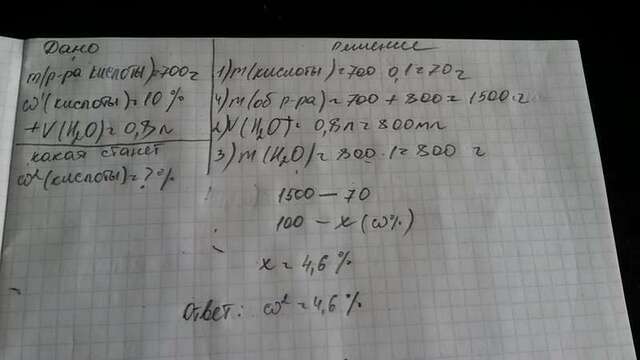 Дано
m(р-ра кислоты)=700г
ω¹(кислоты)=10 %
+V(H₂O)=0,8л
какая станет
ω²(кислоты)=? %
решение
1) m(кислоты)=700 0,1=70г
4) m(об р-ра)=700 + 800=1500 г
2) V(H₂O)= 0,8л=800мл
3) m(H₂O)=800·1=800 г
1500 — 70
100 — x (ω%)
x = 4,6 %
Ответ: ω² = 4,6 %